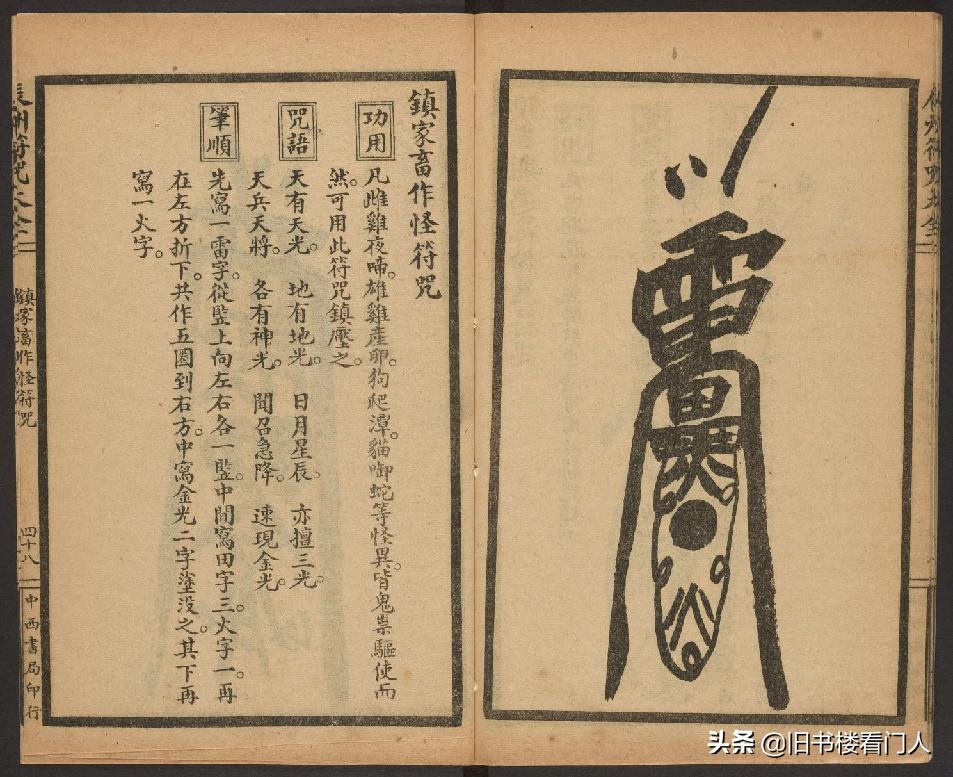 鎮家畜作怪符咒
功用
凡雌雞夜啼。雄雞產卵。狗爬潭。貓啣蛇等怪異。皆鬼祟驅使而
然。可用此符咒鎮壓之。
咒語
天有天光。 地有地光。 日月星辰。 亦擅三光。
天兵天將。 各有神光。 聞召急降。 速現金光。
筆順
先寫一雷字。從竪上向左右各一竪。中間寫田字三。火字一。再
在左方折下。共作五圈到右方。中寫金光二字塗没之。其下再
寫一火字。
鎮家畜作怪符咒
四十八
中西書局印行
头条 @旧书楼看门人